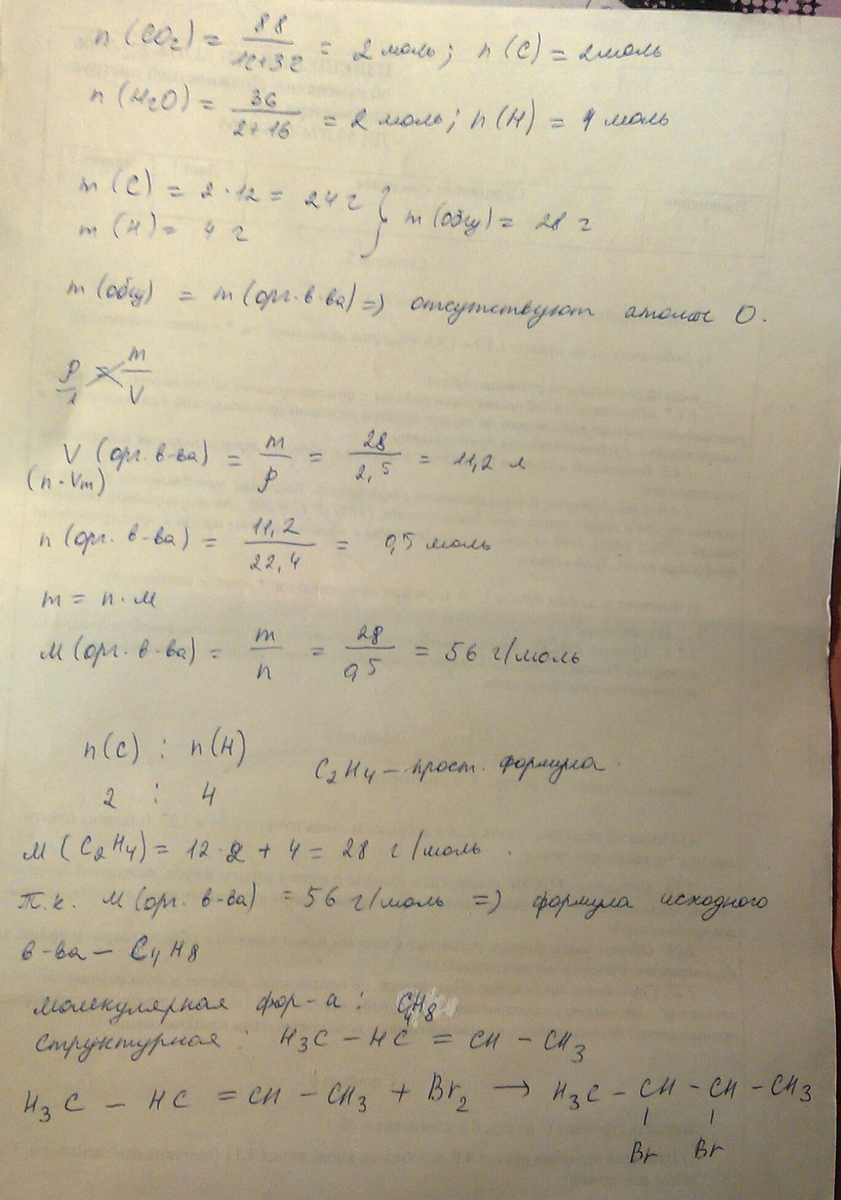 n(CO₂) = 88/12+32 = 2 моль; n(C) = 2 моль
n(H₂O) = 36/2+16 = 2 моль; n(H) = 4 моль
m(C) = 2·12 = 24 г } m(общ) = 28 г
m(H) = 4 г
m(общ) = m(орг. в-ва) => отсутствуют атомы O.
ρ/1 = m/V
V(орг. в-ва) = m/ρ = 28/2,5 = 11,2 л
(n·Vm)
n(орг. в-ва) = 11,2/22,4 = 0,5 моль
m = n·M
M(орг. в-ва) = m/n = 28/0,5 = 56 г/моль
n(C) : n(H)
2 : 4
C₂H₄ – прост. формула.
M(C₂H₄) = 12·2 + 4 = 28 г/моль.
Т.к. M(орг. в-ва) = 56 г/моль => формула исходного
в-ва – C₄H₈
молекулярная фор-а: C₄H₈
структурная: H₃C – HC = CH – CH₃
H₃C – HC = CH – CH₃ + Br₂ → H₃C – CH – CH – CH₃
Br Br